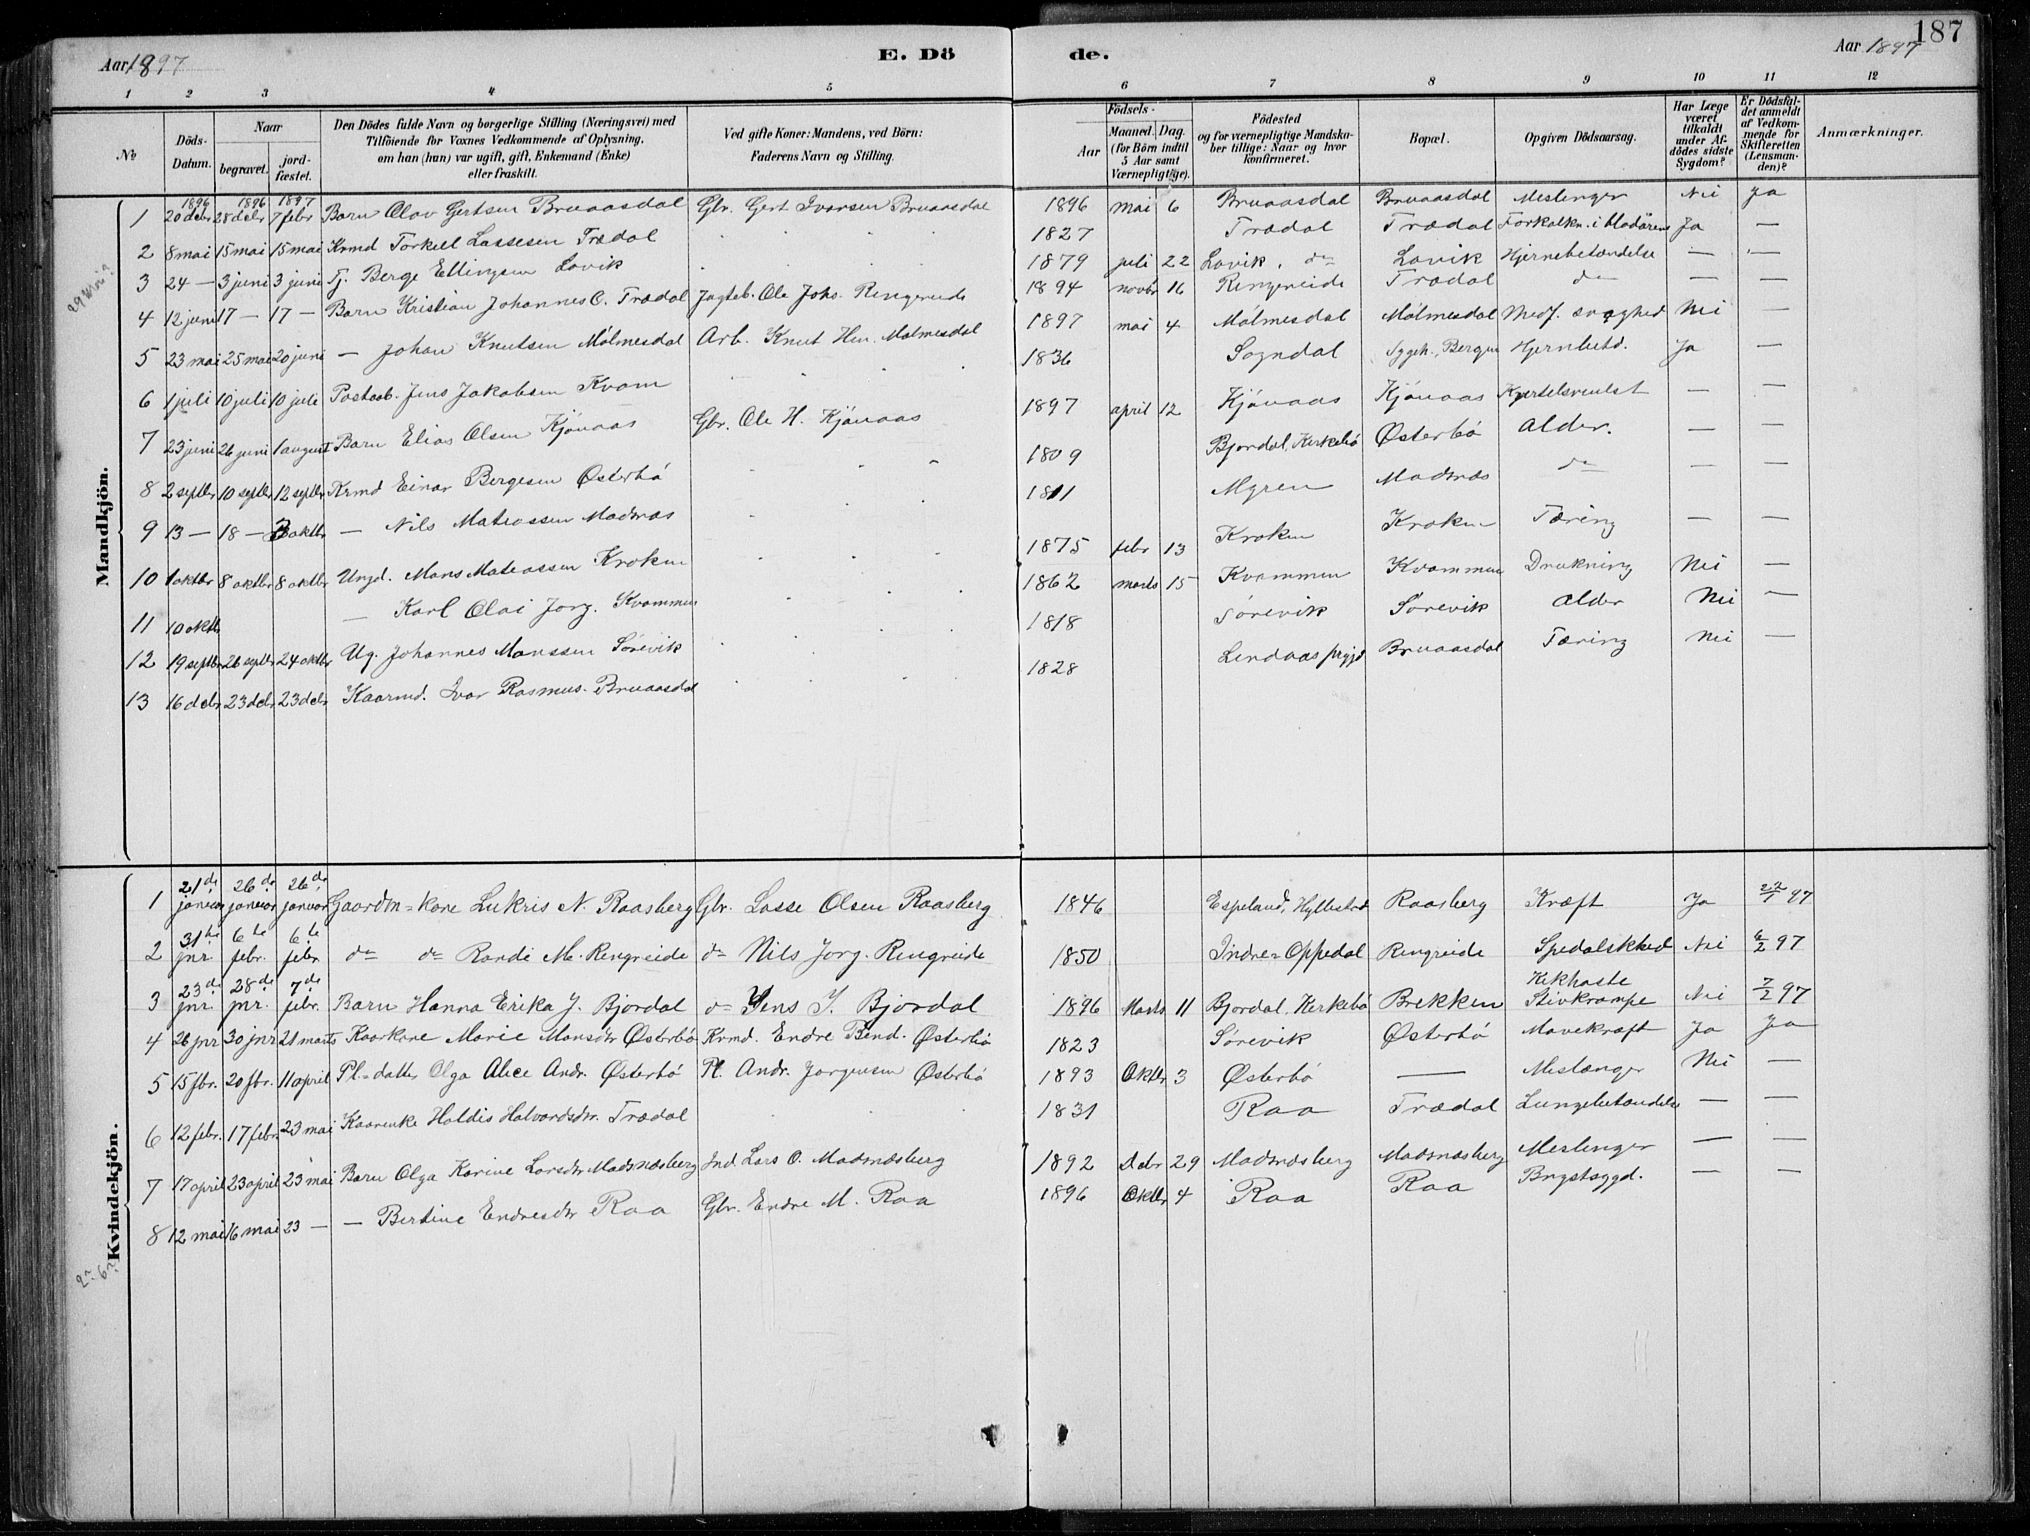 187
Aar 1897
E. Dö
de.
Aar 1897
1 2 3 4 5 6 7 8 9 10 11 12
№
Döds-Datum.
Naar
begravet.
jord-fæstet.
Den Dödes fulde Navn og borgerlige Stilling (Næringsvei) med
Tilföiende for Voxnes Vedkommende af Oplysning,
om han (hun) var ugift, gift, Enkemand (Enke)
eller fraskilt.
Ved gifte Koner: Mandens, ved Börn:
Faderens Navn og Stilling.
Födsels-
Aar
Maaned. Dag.
(for Börn indtil
5 Aar samt
Værnepligtige).
Födested
og for værnepligtige Mandska-
ber tillige: Naar og hvor
konfirmeret.
Bopæl.
Opgiven Dödsaarsag.
Har Læge
været
tilkaldt
under Af-
dödes sidste
Sygdom?
Er Dödsfal-
det anmeldt
af Vedkom-
mende for
Skifteretten
(Lensman-
den)?
Anmærkninger.
Mandkjön.
1 1896 20 debr 1896 28 debr 1897 7 febr Barn Olav Gertsen Bruaasdal Gbr. Gert Ivarsen Bruaasdal 1896 mai 6 Bruaasdal Bruaasdal Meslinger Nei Ja
2 8 mai 15 mai 15 mai Krmd Torkell Lassesen Trædal 1827 Trædal Trædal Forkalkn. i blodårens Ja —
3 24 — 3 juni 3 juni Tj. Berge Ellingsen Lavik 1879 juli 22 Lavik, do Lavik Hjernebetændelse — —
4 12 juni 17 — 17 — Barn Kristian Johannes O. Trædal Jagteb. Ole Johs. Ringereide 1894 novbr 16 Ringereide Trædal do — —
5 23 mai 25 mai 20 juni — Johan Knutsen Målmesdal Arb. Knut Hen. Malmesdal 1897 mai 4 Målmesdal Målmesdal Medf. svaghed Nei —
6 1 juli 10 juli 10 juli Postaab. Jens Jakobsen Kvam 1836 Sogndal Sygeh., Bergen Hjernbetd. Ja —
7 23 juni 26 juni 1 august Barn Elias Olsen Kjönaas Gbr. Ole H. Kjönaas 1897 april 12 Kjönaas Kjönaas Kjertelsvulst — —
8 2 septbr 10 septbr 12 septbr Krmd Einar Bergesen Østerbö 1809 Bjordal, Kirkebö Østerbö Alder. — —
9 13 — 18 — 3 oktbr — Nils Mateossen Madnæs 1811 Myren Madnæs do —
10 1 oktbr 8 oktbr 8 oktbr Ungd. Mons Mateassen Kroken 1875 febr 13 Kroken Kroken Tæring — —
11 10 oktbr — Karl Olai Jorg. Kvammen 1862 marts 15 Kvammen Kvammen Drukning Nei —
12 19 septbr 26 septbr 24 oktbr Ug. Johannes Monssen Sörevik 1818 Sörevik Sörevik Alder Nei —
13 16 debr 23 debr 23 debr Kaarmd. Ivar Rasmus. Bruaasdal 1828 Lindaas prgjd Bruaasdal Tæring Nei —
Kvindekjön.
1 21de januar 26de januar 26de januar Gaardm=kone Lukris N. Raasberg Gbr. Lasse Olsen Raasberg 1846 Espeland, Hyllestad Raasberg Kræft Ja 22/1 97
2 31te jnr. 6te febr. 6te febr. do do Randi M. Ringreide do Nils Jorg. Ringreide 1850 Indre=Oppedal Ringreide Spedalskhed Nei 6/2 97
3 23de jnr. 28de jnr. 7de febr. Barn Hanna Erika J. Bjordal do Jens J. Bjordal 1896 Marts 11 Bjordal, Kirkebö Brekken Kikhoste Stivkrampe Nei 7/2 97
4 26 jnr 30 jnr 21 marts Kaarkone Marie Monsdtr Østerbö Krmd. Endre Bend. Østerbö 1823 Sörevik Østerbö Mavekræft Ja Ja
5 15 fbr. 20 fbr. 11 april Pl=datter Olga Alice Andr. Østerbö Pl. Andr. Jorgensen Østerbö 1893 Oktbr 3 Østerbö — Meslænger Nei —
6 12 febr. 17 febr. 23 mai Kaarenke Haldis Halvardsdtr. Trædal 1831 Raa Trædal Lungebetændelse — —
7 17 april 23 april 23 mai Barn Olga Karine Larsdtr Madsnæsberg Ind. Lars O. Madnæsberg 1892 Debr 29 Madsnæsberg Madsnæsberg Meslinger — —
8 12 mai 16 mai 23 — — Bertine Endresdtr Raa Gbr. Endre M. Raa 1896 Oktbr 4 Raa Raa Brystsygd. — —